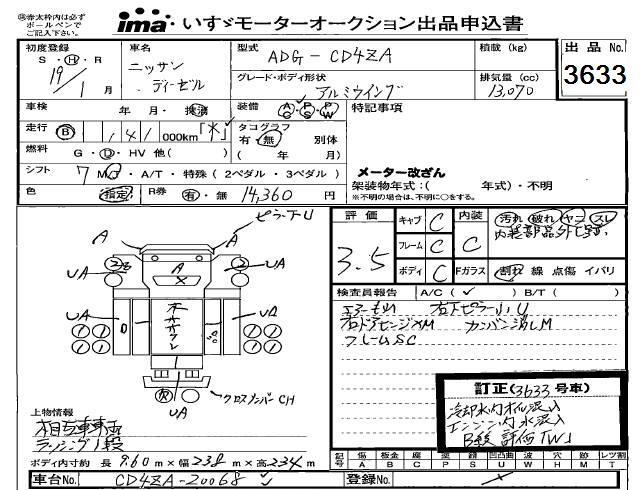 ㊟赤太枠内は必ず
ボールペンで
ご記入下さい。
ima いすゞモーターオークション出品申込書
初度登録
S・H・R
19年 1月
車名
ニッサン
ディーゼル
型式
ADG-CD4ZA
積載 (kg)
出品 No.
3633
グレード・ボディ形状
アルミウイング
排気量 (cc)
13,070
車検
年 月・抹消
装備
AC PS PW
特記事項
走行
B 1 41 000km 「*」
タコグラフ
有・無 別体
( 年 月)
燃料
G・D・HV 他( )
シフト
7 MT・A/T・特殊 ( 2ペダル・3ペダル )
メーター改ざん
架装物年式:( 年式)・不明
※不明の場合は、不明に○をする。
色
指定
R券
有・無 14,360 円
ピラー下U
A A
UA UA
UA UA
UA
クロスメンバーCH
評価
3.5
キャブ C
フレーム C
ボディ C
内装 C
Fガラス
汚れ 破れ ヤニ スレ
割れ 線 点傷 イバリ
検査員報告 A/C ( ✓ ) B/T ( )
右下ピラー小U
フレームSC
訂正(3633号車)
冷却水内オイル混入
エンジン内水混入
B段 評価「W」
上物情報
ラッシング1段
ボディ内寸約 長 9.60 m×幅 238 m×高 234 m
記号
傷 A
板金 B
腐 C
塗 P
錆 S
凹凸曲 U
波 W
穴 H
跡 M
レツ割 T
車台No.
CD4ZA-20068
登録No.